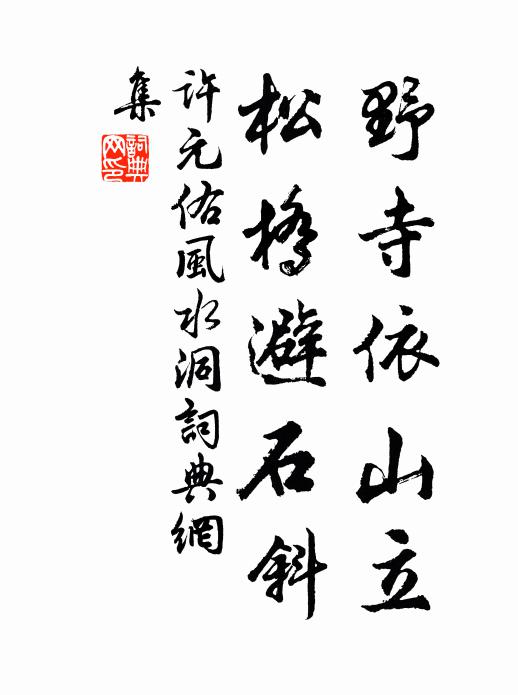 野寺依山立
松橋避石斜
許元佑風水洞詞典網
集
詞典
网印